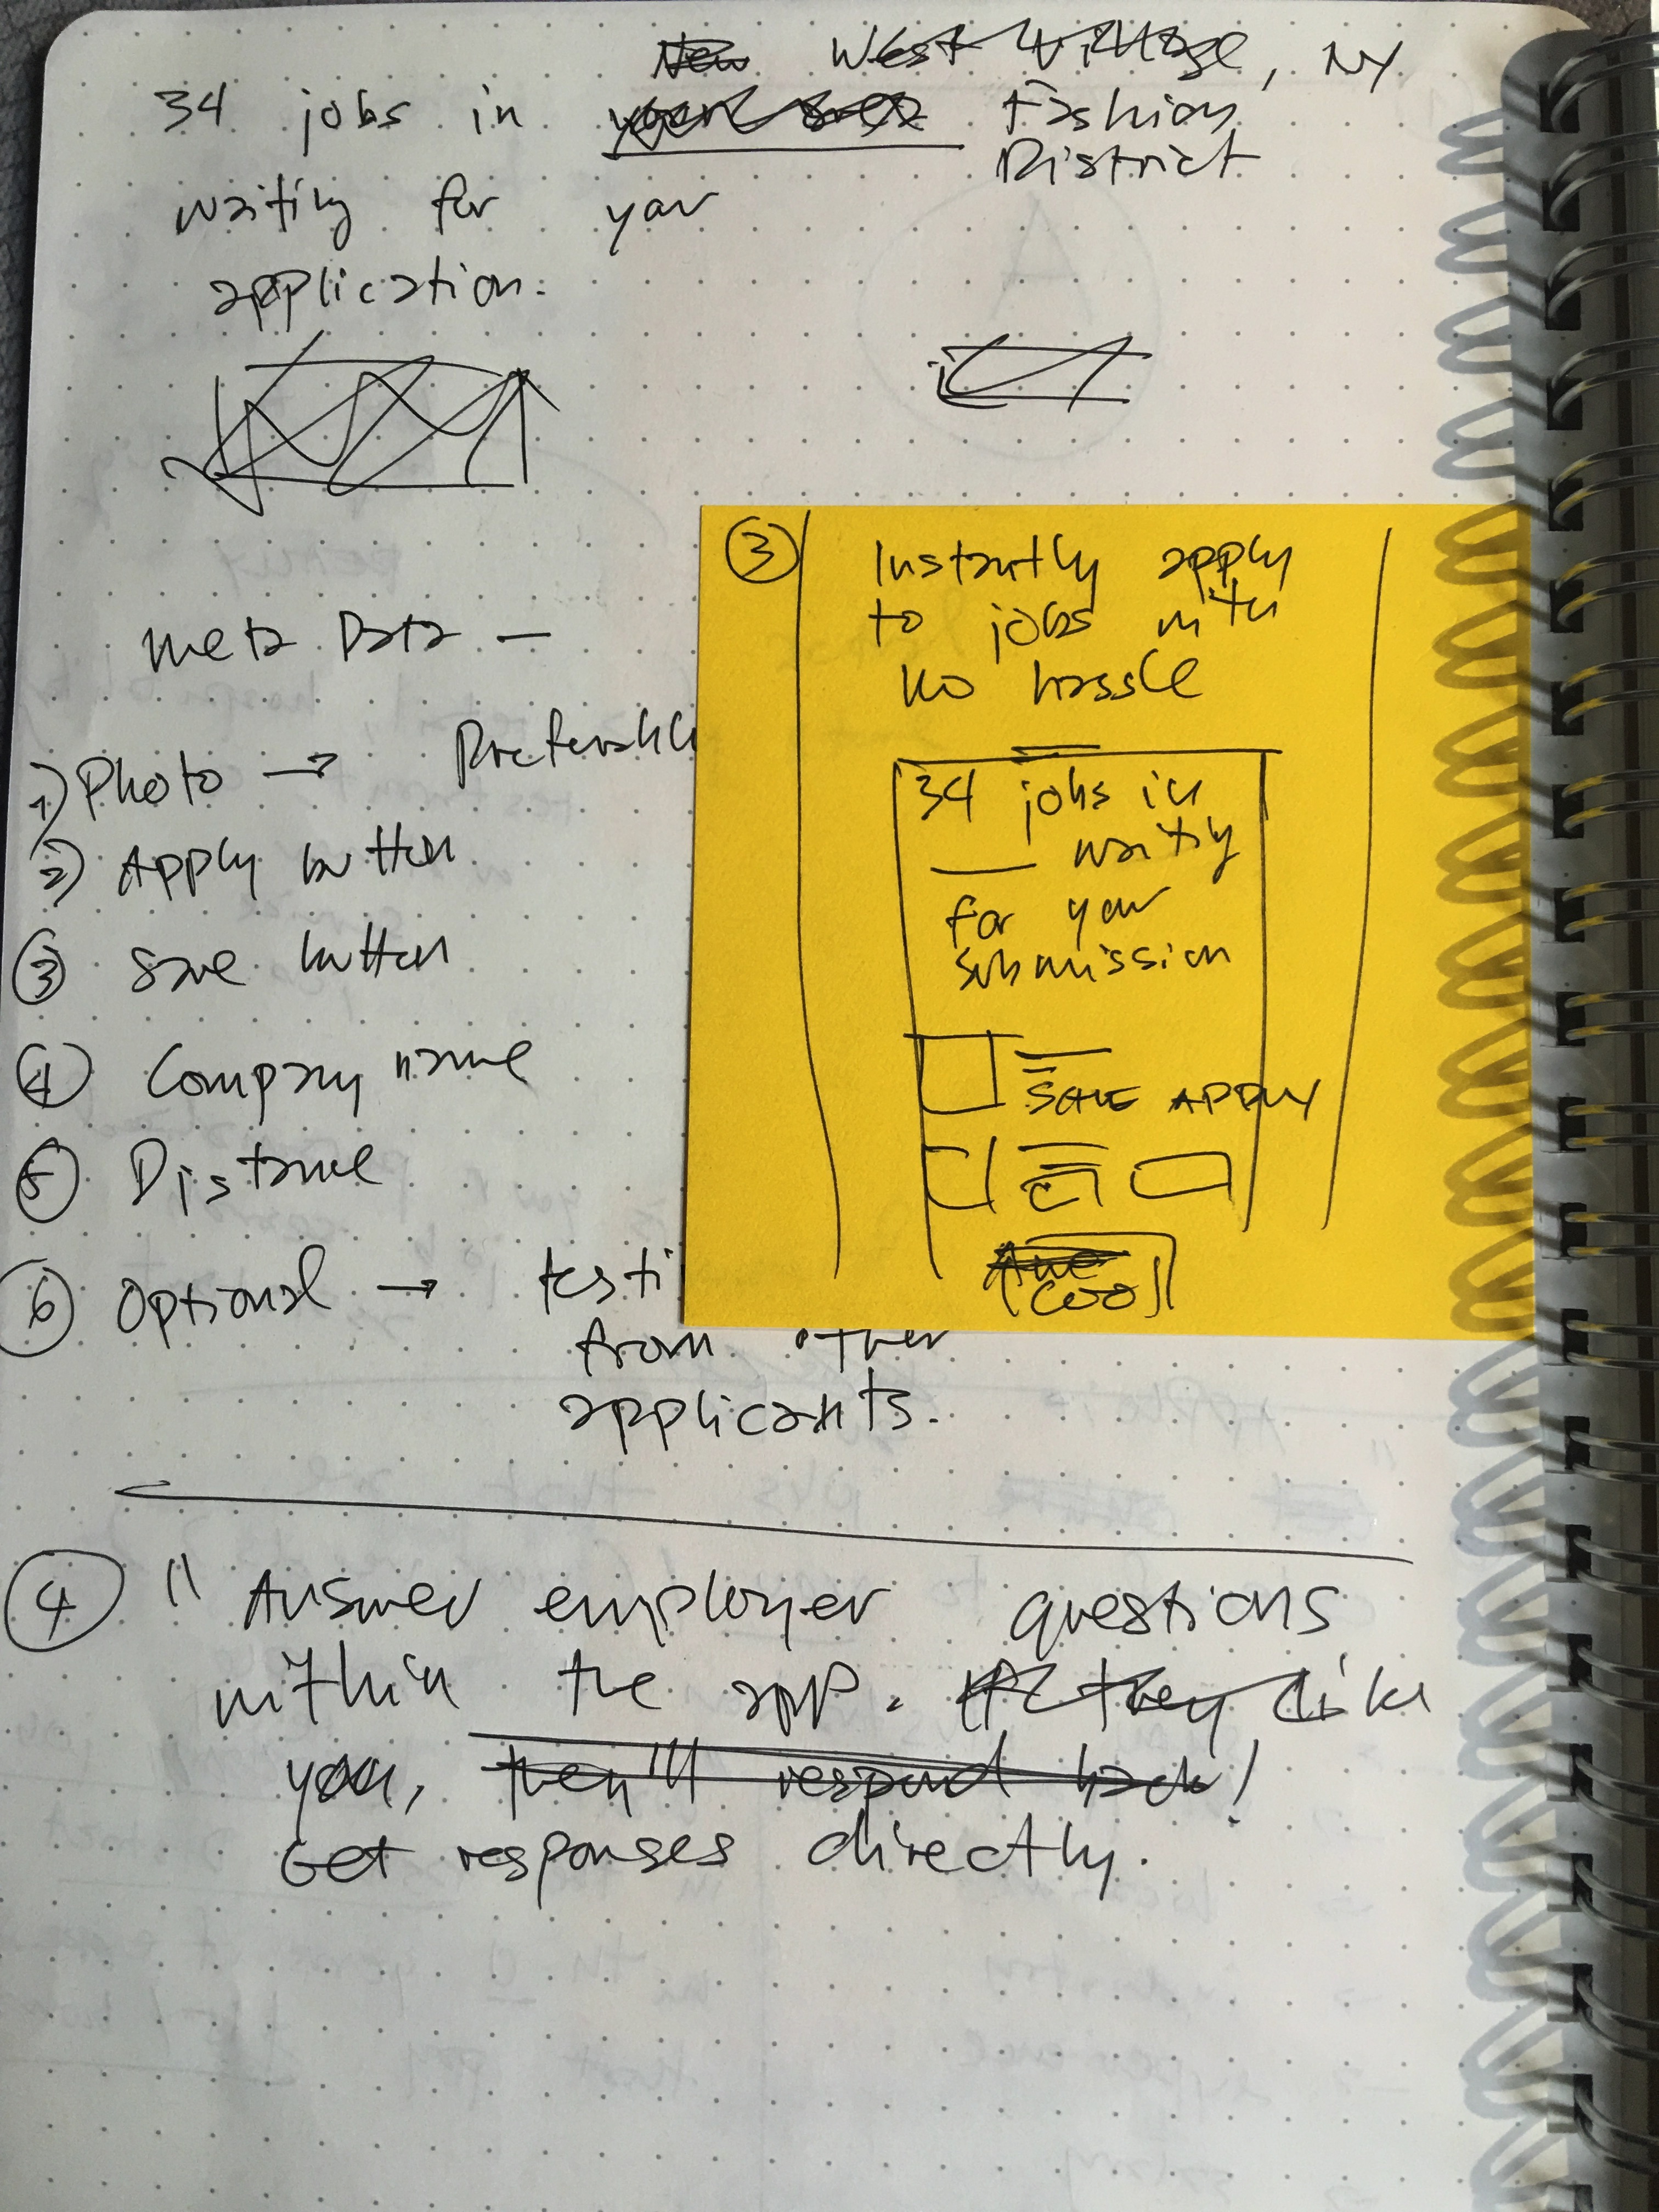 New West Village, NY
34 jobs in your area Fashion
District
waiting for your
application.
Meta Data —
1) Photo → Preferably
2) Apply button
③ Save button
④ Company name
⑤ Distance
⑥ Optional → testi
from other
applicants.
③ Instantly apply
to jobs with
no hassle
34 jobs in
___ waiting
for your
submission
SAVE APPLY
④ "Answer employer questions
within the app. If they like
you, they'll respond back!
Get responses directly.